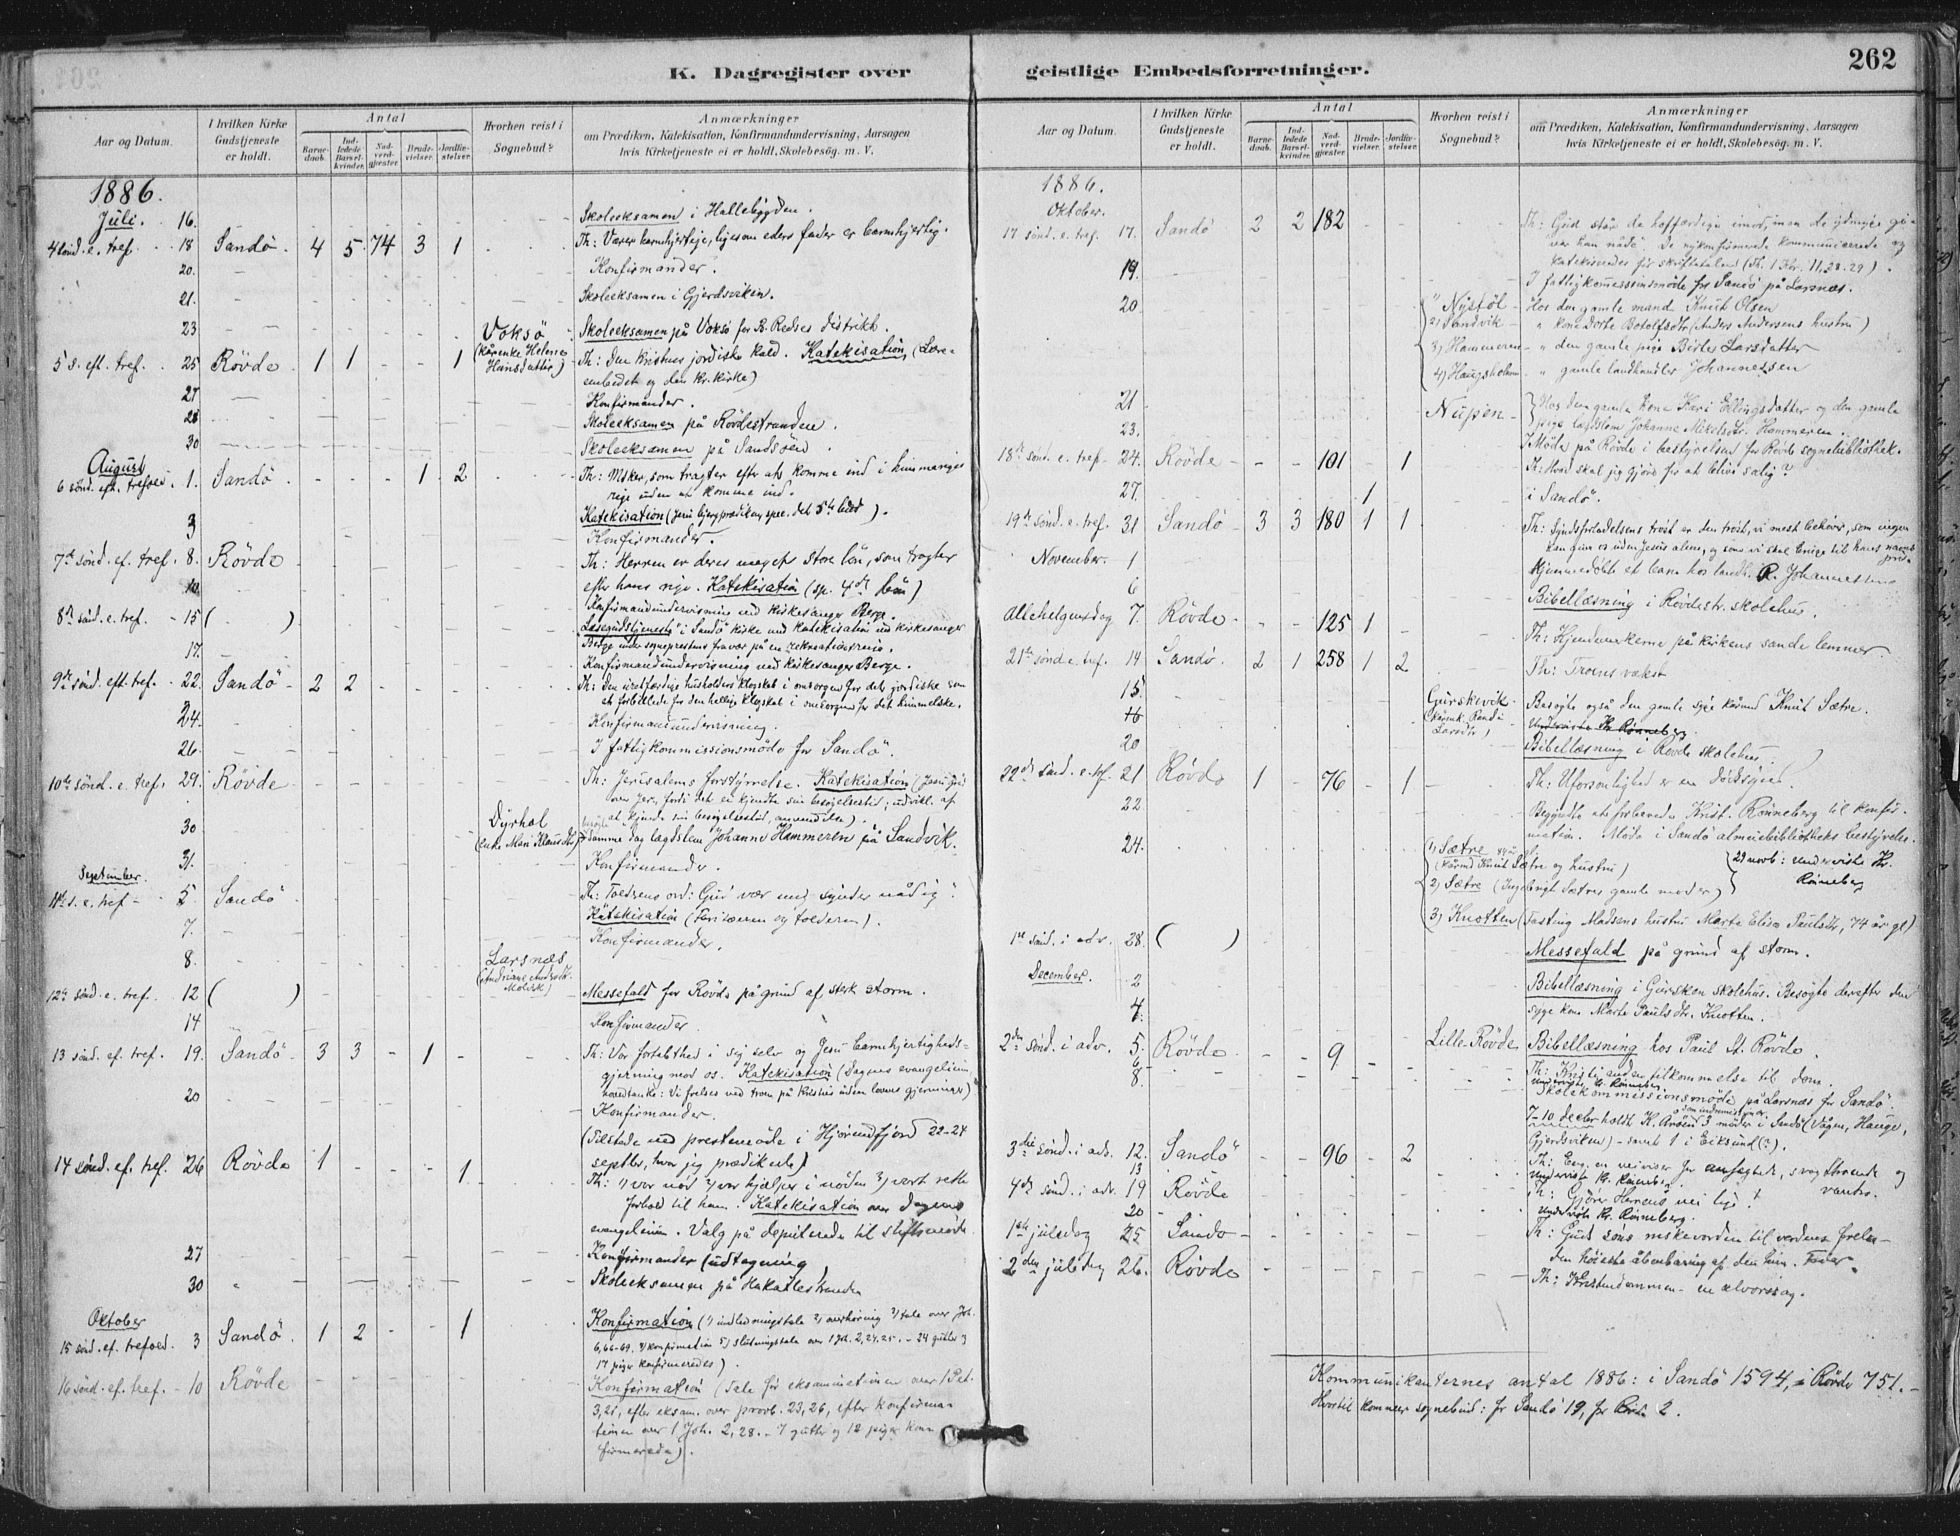 262
K. Dagregister over
geistlige Embedsforretninger.
Aar og Datum.
I hvilken Kirke Gudstjeneste er holdt.
Antal
Barnedaab.
Indledede Barselkvinder.
Nadverdgjæster.
Brudevielser.
Jordfæstelser.
Hvorhen reist i Sognebud?
Anmærkninger
om Prædiken, Katekisation, Konfirmandundervisning, Aarsagen
hvis Kirketjeneste ei er holdt, Skolebesøg. m. V.
1886.
Juli. 16. Skoleeksamen i Hallebygden.
4 sønd. e. tref. 18 Sandö 4 5 74 3 1 Th: Værer barmhjertige, ligesom eders fader er barmhjertig.
20. Konfirmander.
21. Skoleeksamen i Gjerdsviken.
23 Voksö Skoleeksamen på Voksö for B. Redses distrikt.
5 s. eft. tref. 25 Rövde 1 1 - - 1 (kårenke Helene Hansdatter) Th: Den kristnes jordiske kald. Katekisation (Læreembedet og den kr. kirke)
27 Konfirmander.
28 Skoleeksamen på Rövdestranden.
30 Skoleeksamen på Sandsøen
August
6 sönd. eft. trefold. 1. Sandö 1 2 Th: Mker, som tragter efter at komme ind i himmeriges
rige uden at komme ind.
Katekisation (Jesu bjergprædiken, spec. det 5te bud).
3 Konfirmander.
7de sönd. ef. tref. 8. Rövde Th: Herren er deres meget store lön, som tragter
efter hans rige. Katekisation (sp. 4de bön)
10. Konfirmandundervisning ved kirkesanger Berge
8de sönd. e. tref. 15 ( ) Læsegudstjeneste i Sandö kirke med katekisation ved kirkesanger
Berge under sogneprestens fravær på en rekreationsreise.
17. Konfirmandundervisning ved kirkesanger Berge.
9de sönd. eft. tref. 22. Sandö 2 2 Th: Den uretfærdige husholders klogskab i omsorgen for det jordiske som
et forbillede for den hellige klogskab i omsorgen for det himmelske.
24. Konfirmandundervisning.
26. I fattigkommissionsmöde for Sandö.
10de sönd. e. tref. 29. Rövde Th: Jerusalems forstyrrelse. Katekisation (Jesu gråd
over Jer., fordi det ei kjendte sin besögelsestid; udvikl. af
at kjende sin besögelsestid, anvendelse).
30 Dyrhol (enke Mari Klausdtr) besøgte samme dag lagdslem Johanne Hammeren på Sandvik.
31. Konfirmander.
September.
11te s. e. tref. 5 Sandö Th: Tolderens ord: Gud vær mig synder nådig!
Katekisation (Farisæeren og tolderen).
7. Konfirmander.
8. Larsnæs
12te sönd. e. tref. 12 ( ) Messefald for Rövde på grund af sterk storm.
14 Konfirmander.
13 sönd. ef. tref. 19. Sandö 3 3 - 1 - Th: Vor fortabthed i sig selv og Jesu barmhjertighedsgjerning
mod os. Katekisation (Dagens evangelium,
hovedtanke: Vi frelses ved troen på Kristus uden lovens gjerninger)
20 Konfirmander.
(Tilstede ved prestemöde i Hjörundfjord 22-24
septbr, hvor jeg prædikede)
14 sönd. ef. tref. 26 Rövde 1 - - - 1 Th: 1) vor nöd 2) vor hjælper i nöden 3) vort rette
forhold til ham. Katekisation over dagens
evangelium. Valg på deputerede til stiftsmöde
27 Konfirmander (udtagning)
30 Skoleeksamen på Hakallestranden
Oktober
15 sönd. ef. trefold. 3 Sandö 1 2 - - 1 Konfirmation (1) indledningstale 2) overhöring 3) tale over Joh.
6, 66-69. 4) konfirmation 5) slutningstale over 1 Pet. 2, 24, 25. - 24 gutter og
17 piger konfirmeredes).
16 sönd. ef. tref. 10 Rövde Konfirmation (Tale för eksaminationen over 1 Pet.
3, 21, efter eksam. over provb. 23, 26, efter konfirmationen
over 1 Joh. 2, 28. - 7 gutter og 12 piger konfirmerede).
Aar og Datum.
I hvilken Kirke Gudstjeneste er holdt.
Antal
Barnedaab.
Indledede Barselkvinder.
Nadverdgjæster.
Brudevielser.
Jordfæstelser.
Hvorhen reist i Sognebud?
Anmærkninger
om Prædiken, Katekisation, Konfirmandundervisning, Aarsagen
hvis Kirketjeneste ei er holdt, Skolebesøg. m. V.
1886.
Oktober.
17 sönd. e. tref. 17. Sandö 2 2 182 Th: Gud står de hoffærdige imod, men de ydmyge giver
han nåde. De nykonfirmerede kommunicerede og
katekiseredes för skriftetalen (Th. 1 Kor. 11, 28. 29).
19. I fattigkommissionsmöde for Sandö på Larsnæs.
20 1) Nystöl - Hos den gamle mand Knut Olsen
2) Sandvik - " kone Dorte Botolfsdtr (Anders Andersens hustru)
3) Hammeren - " den gamle pige Birte Larsdatter
4) Haugsholmen " gamle landhandler Johannessen
21 Nupen - Hos den gamle kone Kari Ellingsdatter og den gamle
pige lagdslem Johanne Mikelsdtr Hammeren.
23. I Möde på Rövde i bestyrelsen for Rövde sognebibliothek.
18de sönd. e. tref. 24. Rövde - - 101 - 1 Th: Hvad skal jeg gjöre for at blive salig?
27. 1 i Sandö.
19de sönd. e. tref. 31 Sandö 3 3 180 1 1 Th: Syndsforladelsens tröst er den tröst, vi mest behöver, som ingen
kan give os uden Jesus alene, og som vi skal bruge til hans navns
pris.
November. 1 Hjemmedöbte et barn hos landh. R. Johannessen
6 Bibellæsning i Rövdestr. skolehus.
Allehelgensdag 7. Rövde - - 125 1 - Th: Kjendemerkerne på kirkens sande lemmer
21de sönd. e. tref. 14 Sandö 2 1 258 1 2 Th: Troens vækst
15 Gurskevik (kårenk. Randi Larsdtr) Besögte også den gamle syge kårmd Knut Sætre.
16 Underviste Kr. Rönneberg.
20 Bibellæsning i Rövde skolehus.
22de sönd. e. tref. 21 Rövde 1 - 76 - 1 Th: Uforsonlighed er en dödssynd.
22 Begyndte at forberede Krist. Rönneberg til konfirmation.
Möde i Sandö almuebibliotheks bestyrelse.
24. 1) Sætre 84 år gl. (kårmd Knut Sætre og hustru) 29 novb: underviste Kr. Rönneberg
2) Sætre (Ingebrigt Sætres gamle moder)
3) Knotten (Fasting Madsens hustru Marte Elise Paulsdtr, 74 år gl)
1ste sönd. i adv. 28. ( ) Messefald på grund af storm.
December. 2 Bibellæsning i Gurskens skolehus. Besögte derefter den
syge kone Marte Paulsdtr. Knotten.
4. Lille-Rövde Bibellæsning hos Paul St. Rövde.
2den sönd. i adv. 5. Rövde - - 9 - - Th: Kristi anden tilkommelse til dom.
6 Underviste Kr. Rönneberg.
8. Skolekommissionsmöde på Larsnæs for Sandö.
7-10 decbr holdt K. Aröen som indremissionær 3 möder i Sandö (Vågen, Hauge,
Gjerdsviken) - samt 1 i Eiksund (?).
3die sönd. i adv. 12. Sandö 96 - 2 Th: Evg. en veiviser for anfægtede, svagttroende og
vantro.
13 Underviste Kr. Rönneberg.
4de sönd. i adv. 19 Rövde Th: Gjörer Herrens vei lige!
20 Underviste Kr. Rönneberg.
1ste juledag 25 Sandö Th: Guds söns mskevorden til verdens frelse -
den höieste åbenbaring af den him. Fader.
2den juledag 26. Rövde Th: Kristendommen - en alvorssag.
Kommunikanternes antal 1886: i Sandö 1594, i Rövde 751.
Hvortil kommer sognebud: for Sandö 19, for Rövde 2.